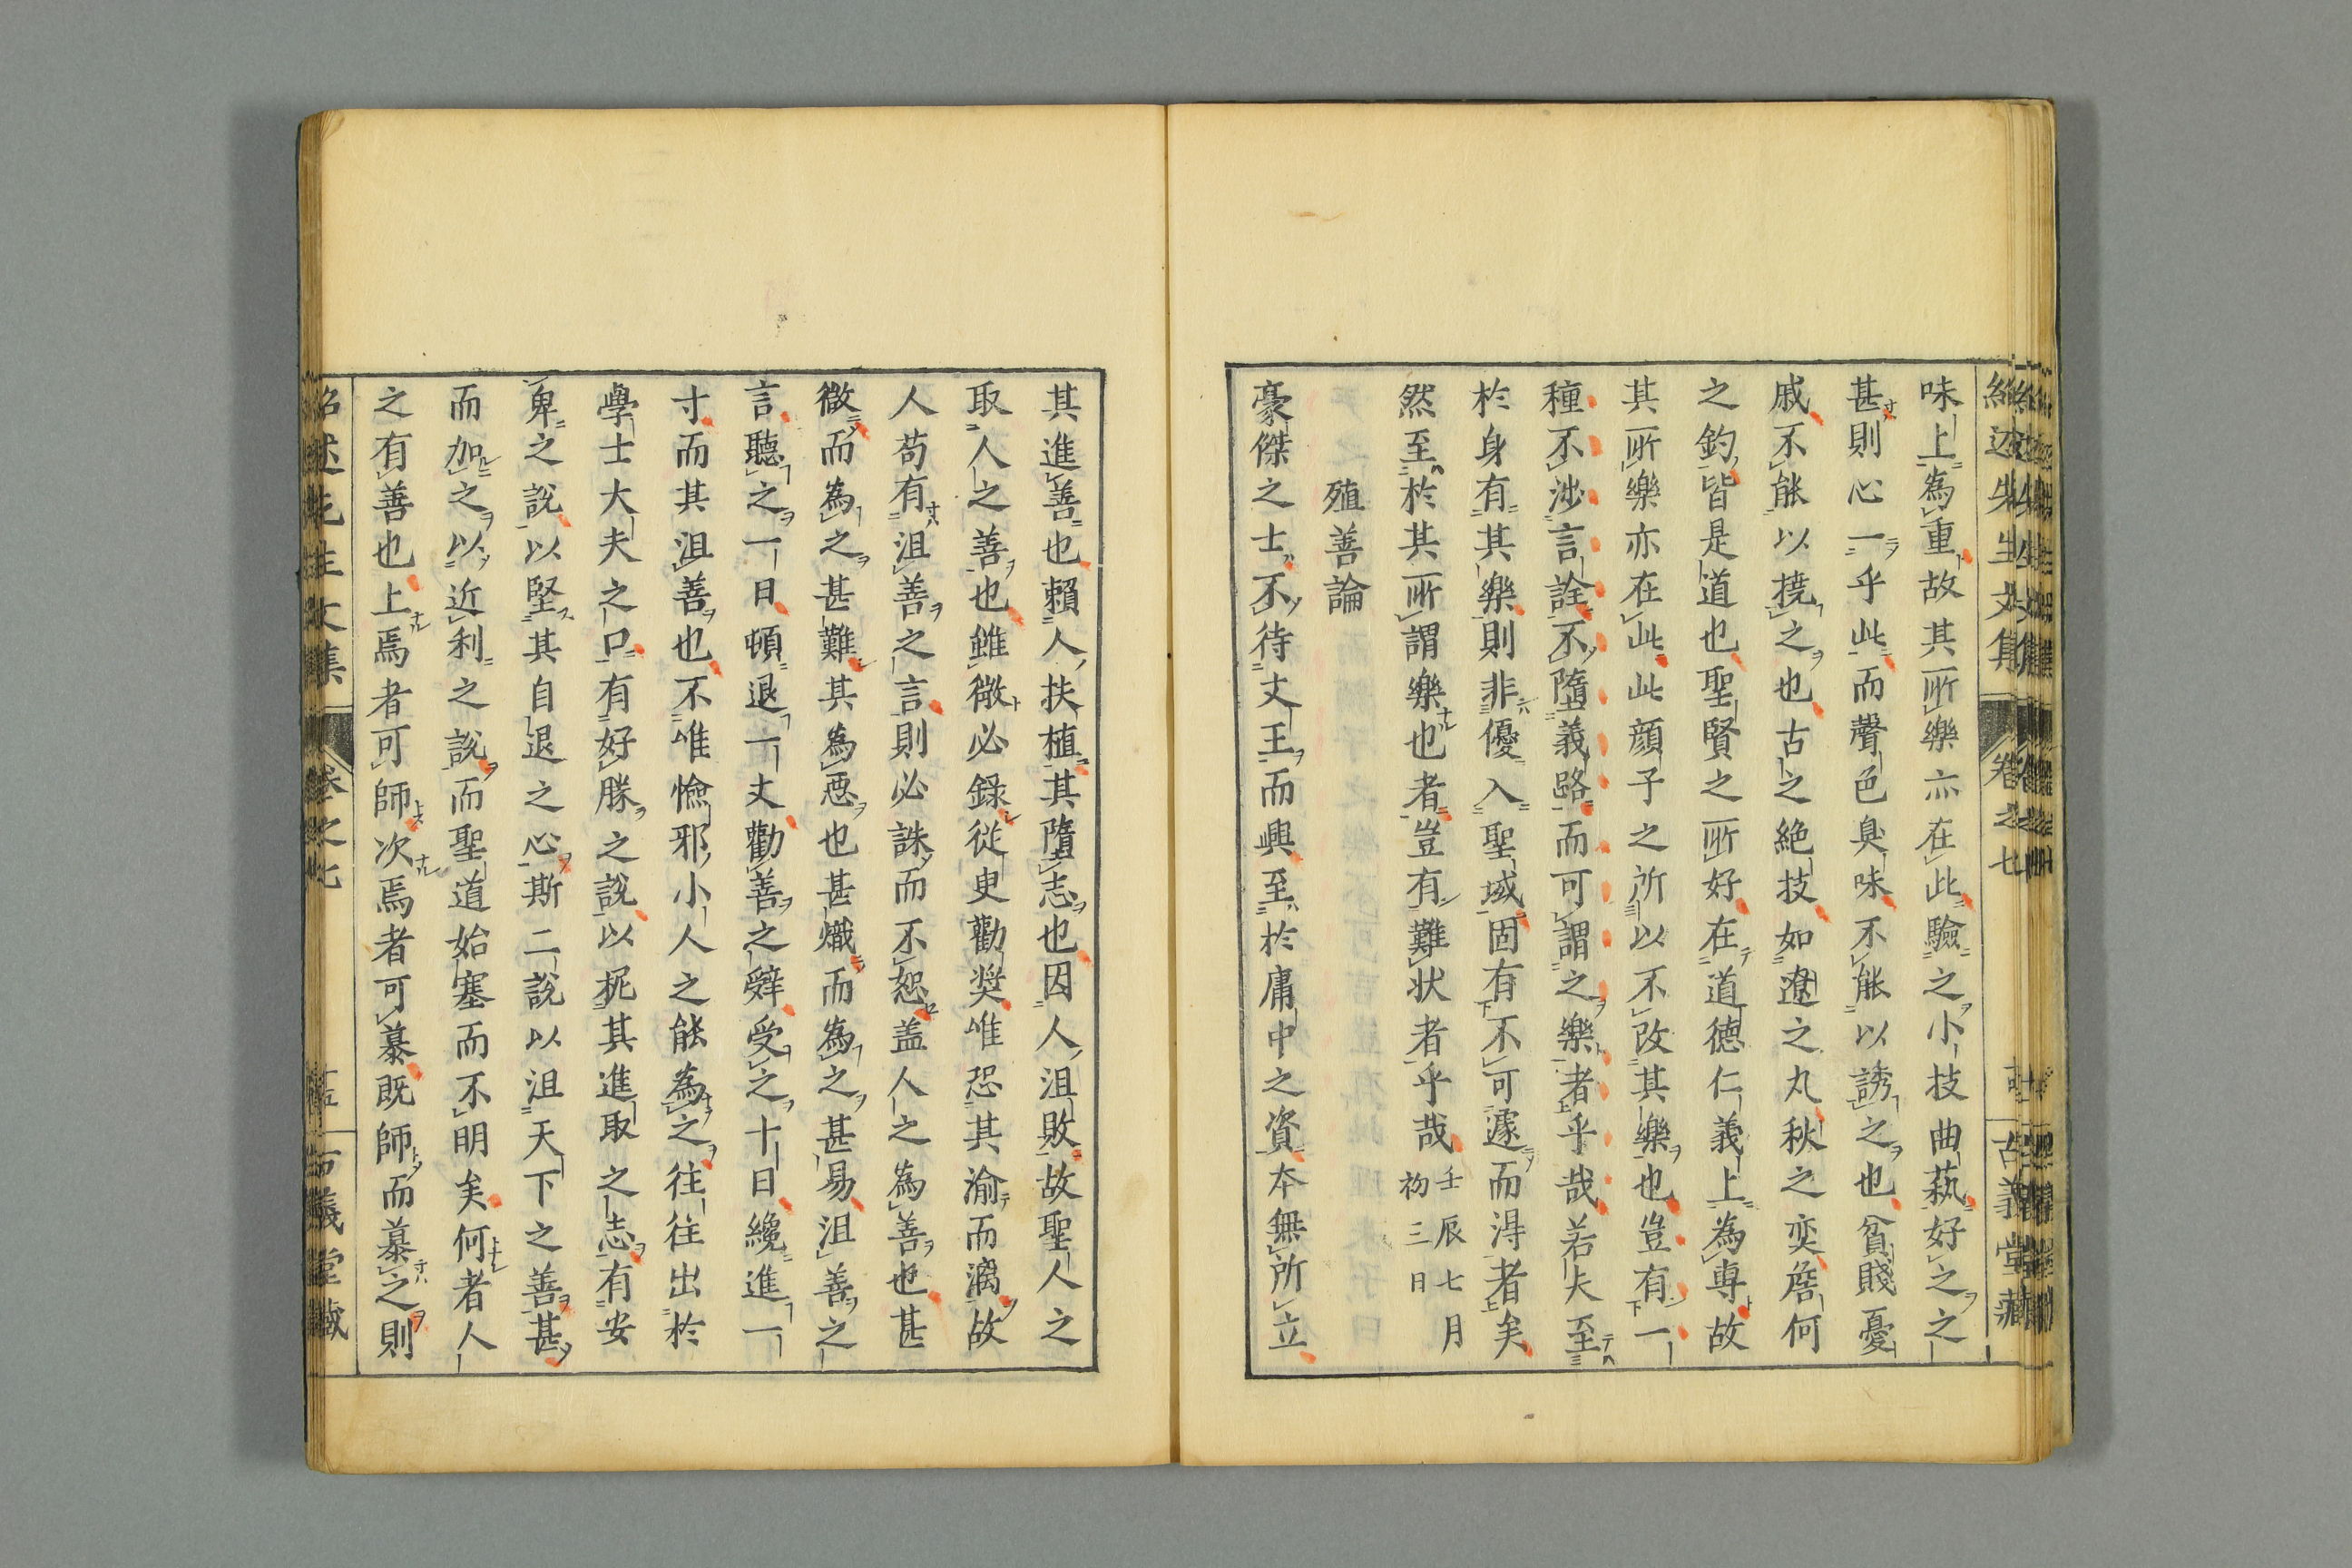 味上為重故其所樂亦在此驗之小技曲藝好之之
甚則心一乎此而聲色臭味不能以誘之也貧賤憂
戚不能以撓之也古之絶技如遼之丸秋之奕詹何
之釣皆是道也聖賢之所好在道德仁義上為專故
其所樂亦在此此顔子之所以不改其樂也豈有一
種不渉言詮不墮義路而可謂之樂者乎哉若夫至
於身有其樂則非優入聖域固有不可遽而得者矣
然至於其所謂樂也者豈有難状者乎哉壬辰七月
初三日
殖善論
豪傑之士不待文王而興至於庸中之資本無所立
其進善也賴人扶植其墮志也因人沮敗故聖人之
取人之善也雖微必録從臾勸奨唯恐其渝而漓故
人苟有沮善之言則必誅而不恕盖人之為善也甚
微而為之甚難其為惡也甚熾而為之甚易沮善之
言聽之一日頓退一丈勸善之辤受之十日纔進一
寸而其沮善也不唯憸邪小人之能為之往往出於
學士大夫之口有好勝之説以抳其進取之志有安
卑之説以堅其自退之心斯二説以沮天下之善甚
而加之以近利之説而聖道始塞而不明矣何者人
之有善也上焉者可師次焉者可慕既師而慕之則
紹述先生文集
卷之七
古義堂藏